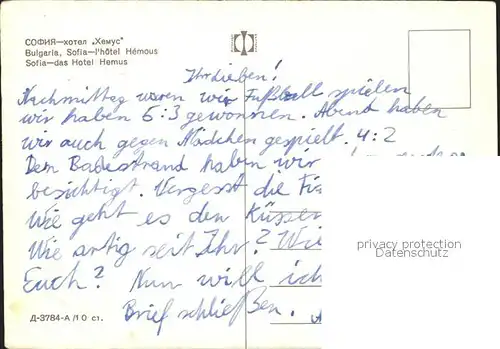 СОФИЯ—хотел „Хемус“
Bulgaria, Sofia—l'hôtel Hémous
Sofia—das Hotel Hemus
Ihr lieben!
Nachmittag waren wir Fußball spielen
wir haben 6:3 gewonnen. Abend haben
wir auch gegen Mädchen gespielt. 4:2
Den Badestrand haben wir
besichtigt. Vergesst die
Wie geht es den
Wie artig seit Ihr? Wie
Euch? Nun will ich
Brief schließen.
privacy protection
Datenschutz
Д-3784-А/10 ст.